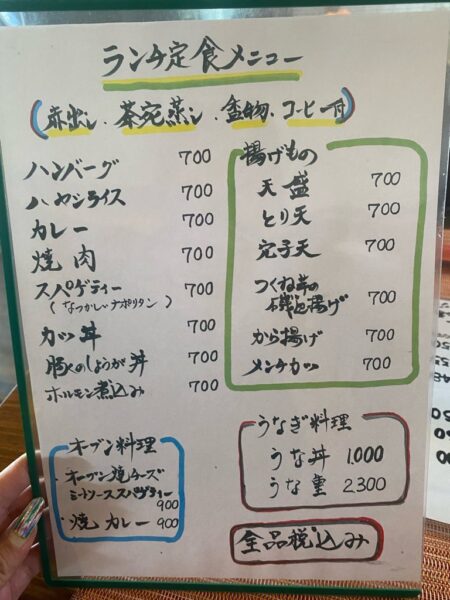 ランチ定食メニュー
(赤出し、茶宛蒸し、盆物、コーヒー付)
ハンバーグ 700
ハヤシライス 700
カレー 700
焼肉 700
スパゲティー 700
(なつかしいナポリタン)
カツ丼 700
豚のしょうが丼 700
ホルモン煮込み 700
揚げもの
天盛 700
とり天 700
穴子天 700
つくね芋の
磯辺揚げ 700
から揚げ 700
メンチカツ 700
オーブン料理
・オーブン焼チーズ
ミートソーススパゲティー
900
・焼カレー 900
うなぎ料理
うな丼 1.000
うな重 2.300
全品税込み